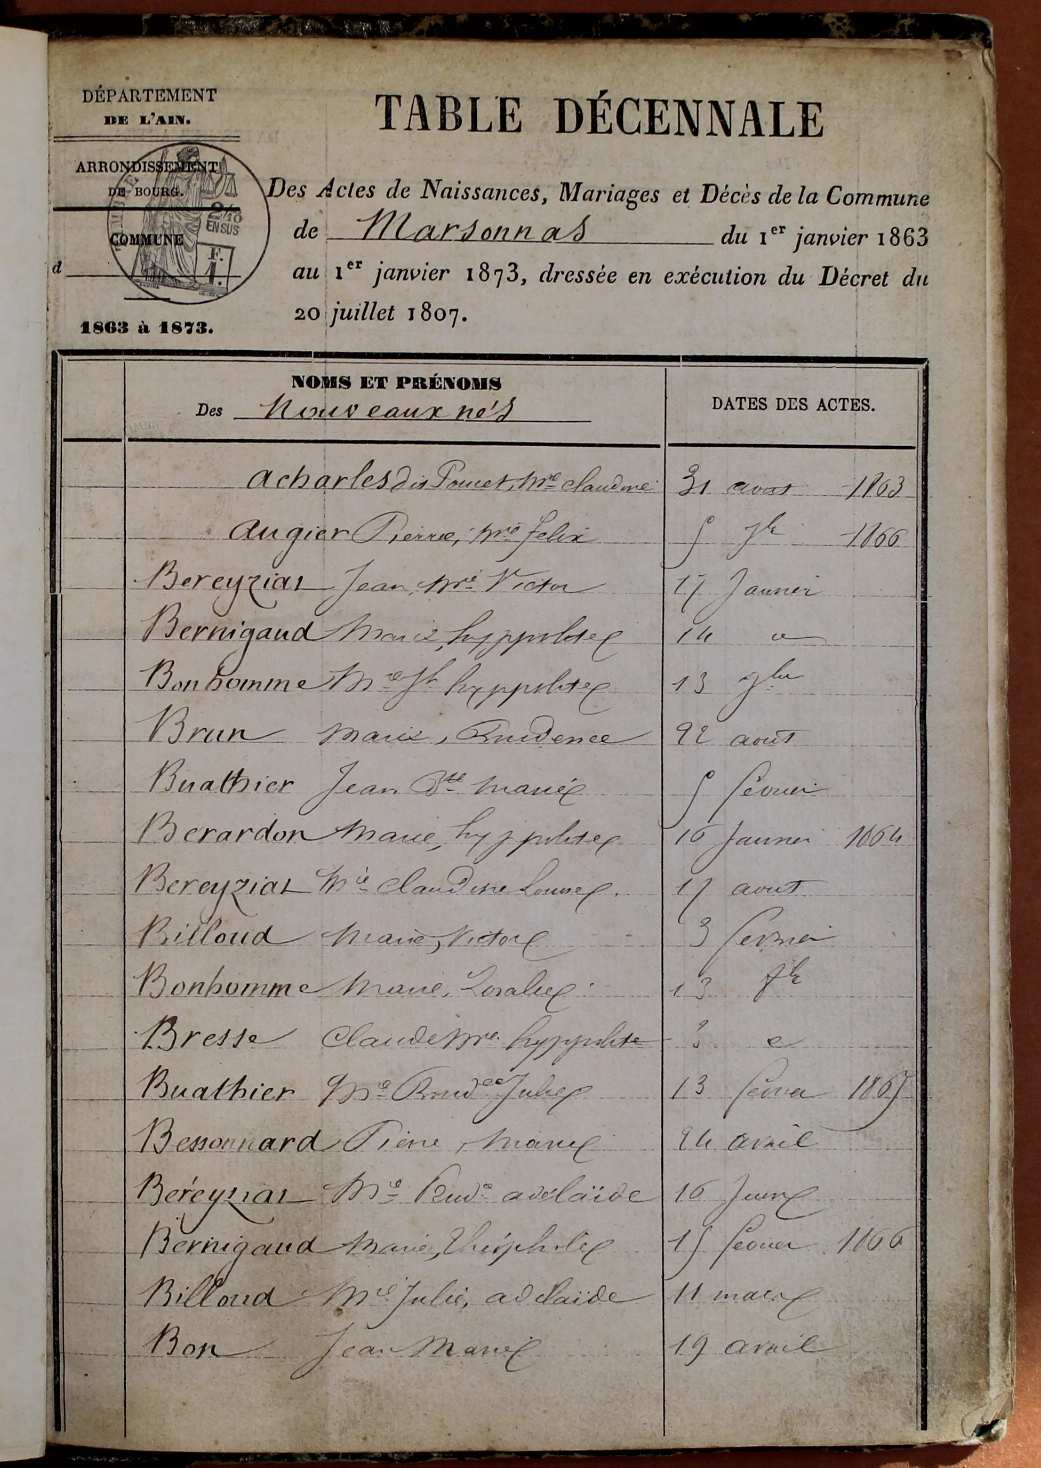 DÉPARTEMENT
DE L'AIN.
ARRONDISSEMENT
DE BOURG.
COMMUNE
d
1863 à 1873.
2/10
EN SUS
F.
1.
TABLE DÉCENNALE
Des Actes de Naissances, Mariages et Décès de la Commune
de Marsonnas du 1er janvier 1863
au 1er janvier 1873, dressée en exécution du Décret du
20 juillet 1807.
NOMS ET PRÉNOMS
Des Nouveaux nés
DATES DES ACTES.
Acharles dit Poncet, Mie Claudine 31 aout 1863
Augier Pierre, Mie Felix 5 1866
Bereyziat Jean, Mie Victor 17 Janvier
Bernigaud Marie, hyppolite 14
Bonhomme Mie Jh hyppolite 13 9bre
Brun Marie, Prudence 22 août
Buathier Jean Bte Marie 5 février
Berardon Marie, hyppolite 16 Janvier 1864
Bereyziat Mie Claudine Louise 17 aout
Billoud Marie, Victor 3 février
Bonhomme Marie, Rosalie 13
Bresse Claude Mie hyppolite 3
Buathier Mie Prudce Julie 13 février 1865
Bessonnard Pierre, Marie 24 avril
Béreyziat Mie Prude adélaïde 16 Juin
Bernigaud Marie, Théophile 15 février 1866
Billoud Mie Julie, adélaïde 11 mars
Bon Jean Marie 19 avril